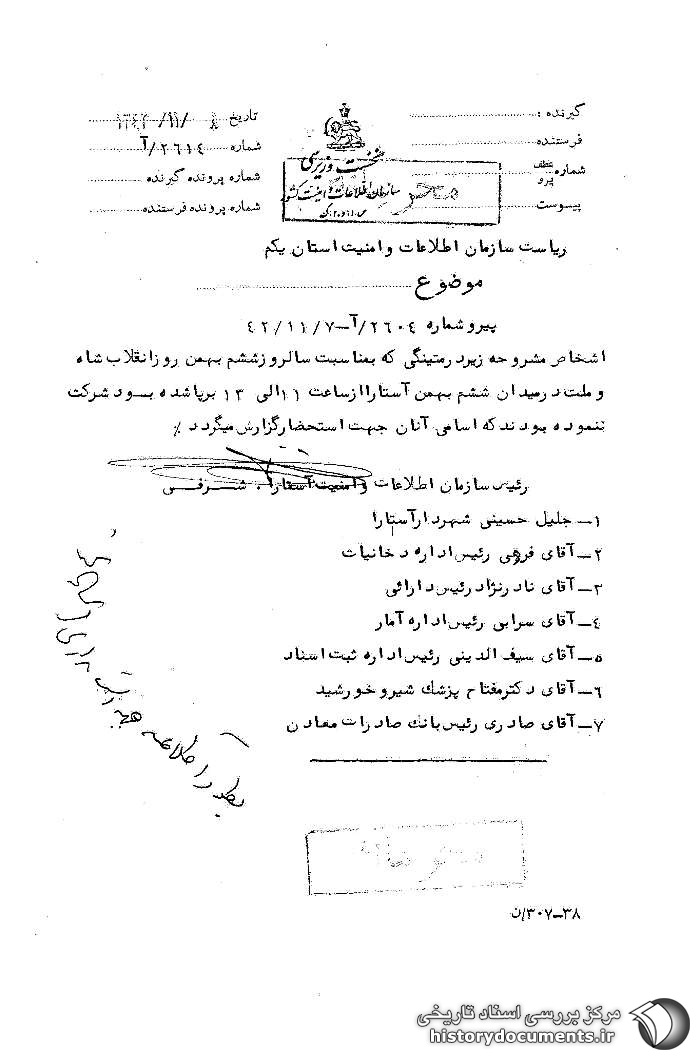 گیرنده :
فرستنده
شماره عطف پرو
پیوست
نخست وزیری
سازمان اطلاعات و امنیت کشور
س.ا.و.ا.ك
تاریخ ۸ /۱۱/ ۱۳۴۲
شماره ۲۶۱٤/آ
شماره پرونده گیرنده
شماره پرونده فرستنده
ریاست سازمان اطلاعات و امنیت استان یکم
موضوع
پیرو شماره ۲۶۰٤/آ-۴۲/۱۱/۷
اشخاص مشروحه زیر در متینگی که بمناسبت سالروز ششم بهمن روز انقلاب شاه
و ملت در میدان ششم بهمن آستارا از ساعت ۱۱ الی ۱۳ برپا شده بود شرکت
ننموده بودند که اسامی آنان جهت استحضار گزارش میگردد ٪
رئیس سازمان اطلاعات و امنیت آستارا . شرفی
۱- جلیل حسینی شهردار آستارا
۲- آقای فرهی رئیس اداره دخانیات
۳- آقای نادرنژاد رئیس دارائی
٤- آقای سرابی رئیس اداره آمار
۵- آقای سیف الدینی رئیس اداره ثبت اسناد
۶- آقای دکتر مفتاح پزشك شیر و خورشید
۷- آقای صادری رئیس بانك صادرات معادن
۳۰۷-۳۸/ن
مرکز بررسی اسناد تاریخی
historydocuments.ir